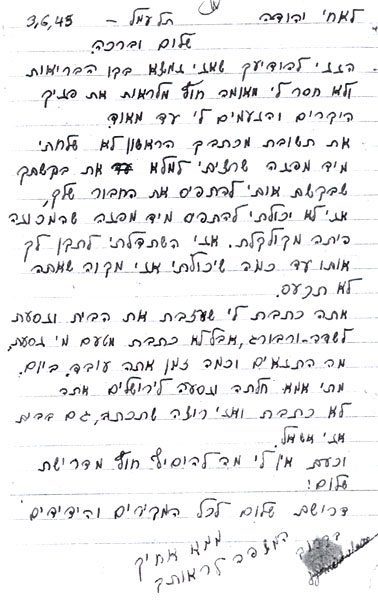 לאחי יהודה תל עמל - 3,6,45
שלום וברכה.
הנני להודיעך שאני נמצא בקו הבריאות
ולא חסר לי מאומה חוץ מלראות את פניך
היקרים והנעימים לי עד מאוד.
את תשובת מכתבך הראשון לא שלחתי
מיד מפני שרציתי למלא את בקשתך
שבקשת אותי להדפיס את החבור שלך,
אני לא יכולתי להדפיס מיד מפני שהמכונה
היתה מקולקלת. אני השתדלתי לתקן לך
אותו עד כמה שיכולתי אני מקוה שאתה
לא תכעס.
אתה כתבת לי שעזבת את הבית ונסעת
לשדה-ורבורג, אבל לא כתבת מטעם מי נסעת,
מה התנאים וכמה זמן אתה עובד ביום.
מתי אמא חלתה ונסעה לירושלים אתה
לא כתבת ואני רוצה שתכתב, גם בבית
אני אשאל.
וכעת אין לי מה להוסיף חוץ מדרישת
שלום!
דרישת שלום לכל המכירים והידידים
ממני אחיך
המצפה לראותך
בקרוב